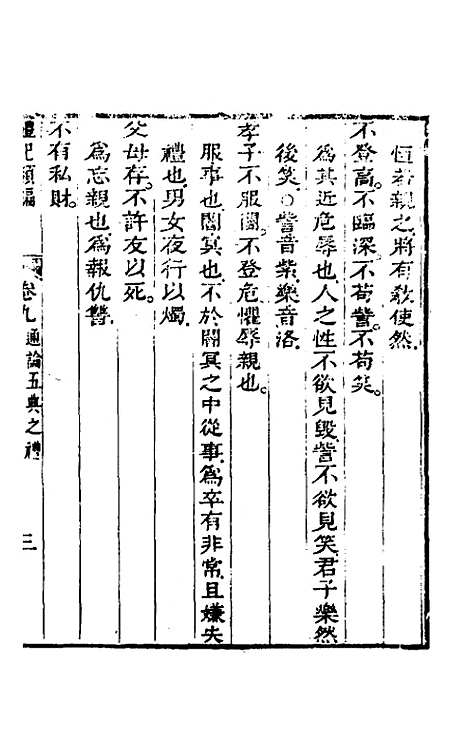 恒若親之將有敎使然
不登高。不臨深。不苟訾。不苟笑。
爲其近危辱也人之性不欲見毀訾不欲見笑君子樂然
後笑○訾音紫樂音洛
孝子不服闇。不登危懼辱親也。
服事也闇冥也不於闇冥之中從事爲卒有非常且嫌失
禮也男女夜行以燭
父母存。不許友以死。
爲忘親也爲報仇讐
不有私財。
禮記類編 卷九 通論五典之禮 三